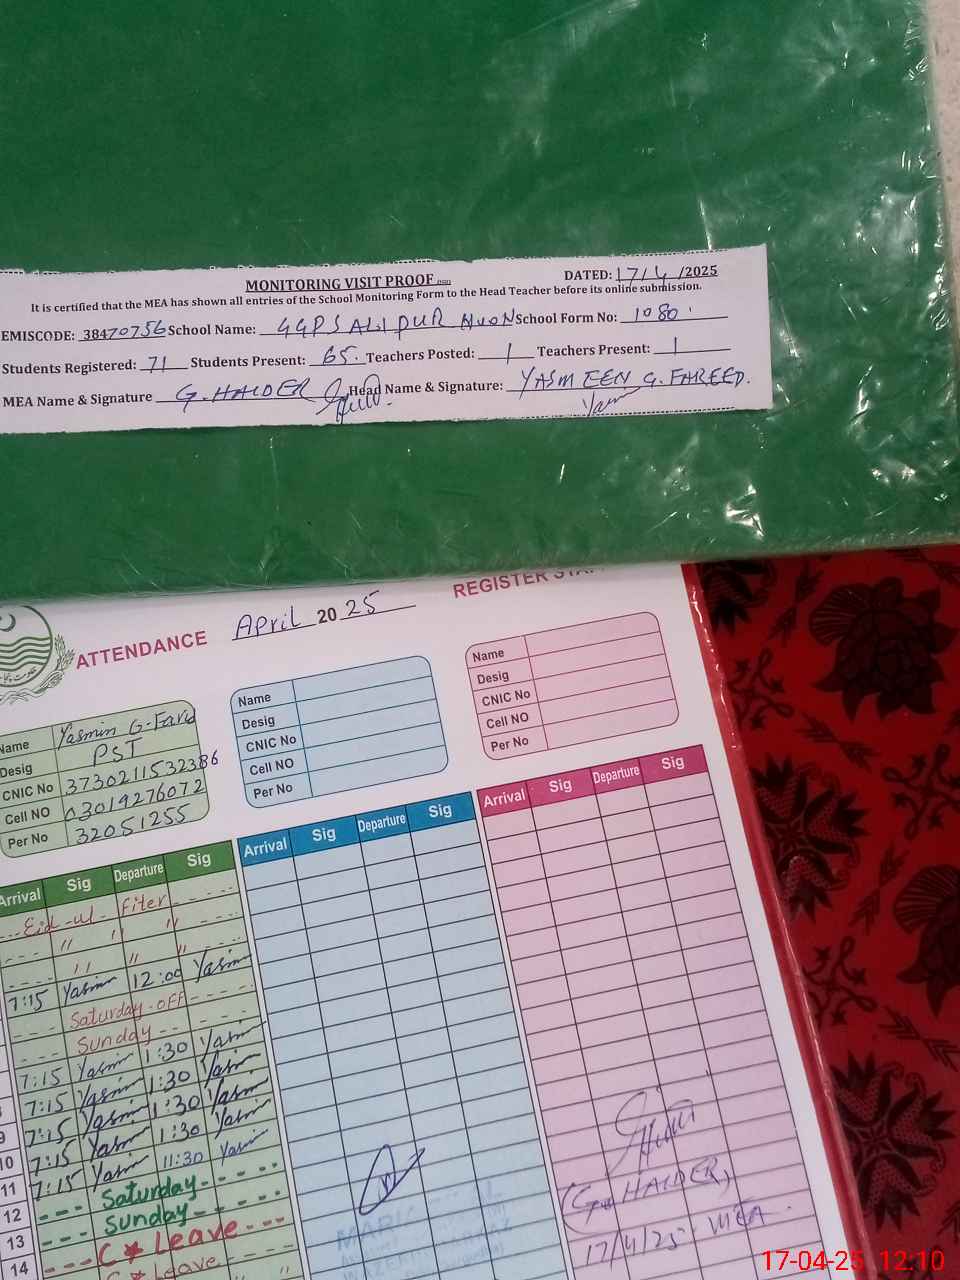 MONITORING VISIT PROOF
DATED: 17/4/2025
It is certified that the MEA has shown all entries of the School Monitoring Form to the Head Teacher before its online submission.
EMISCODE: 38470756 School Name: GGPS ALI PUR NOON School Form No: 1080
Students Registered: 71 Students Present: 65. Teachers Posted: 1 Teachers Present: 1
MEA Name & Signature G. HAIDER Head Name & Signature: YASMEEN G. FAREED.
ATTENDANCE April 2025 REGISTER
Name Yasmin G-Farid
Desig PST
CNIC No 3730211532386
Cell NO 03019276072
Per No 32051255
Name
Desig
CNIC No
Cell NO
Per No
Name
Desig
CNIC No
Cell NO
Per No
Arrival Sig Departure Sig
Arrival Sig Departure Sig
Arrival Sig Departure Sig
Eid-ul-Fiter
" " "
" " "
7:15 Yasmin 12:00 Yasmin
Saturday-OFF
Sunday
7:15 Yasmin 1:30 Yasmin
7:15 Yasmin 1:30 Yasmin
9 7:15 Yasmin 1:30 Yasmin
10 7:15 Yasmin 1:30 Yasmin
11 7:15 Yasmin 11:30 Yasmin
12 Saturday
13 Sunday
14 C * Leave
C * Leave
(G. HAIDER)
17/4/25 MEA
17-04-25 12:10